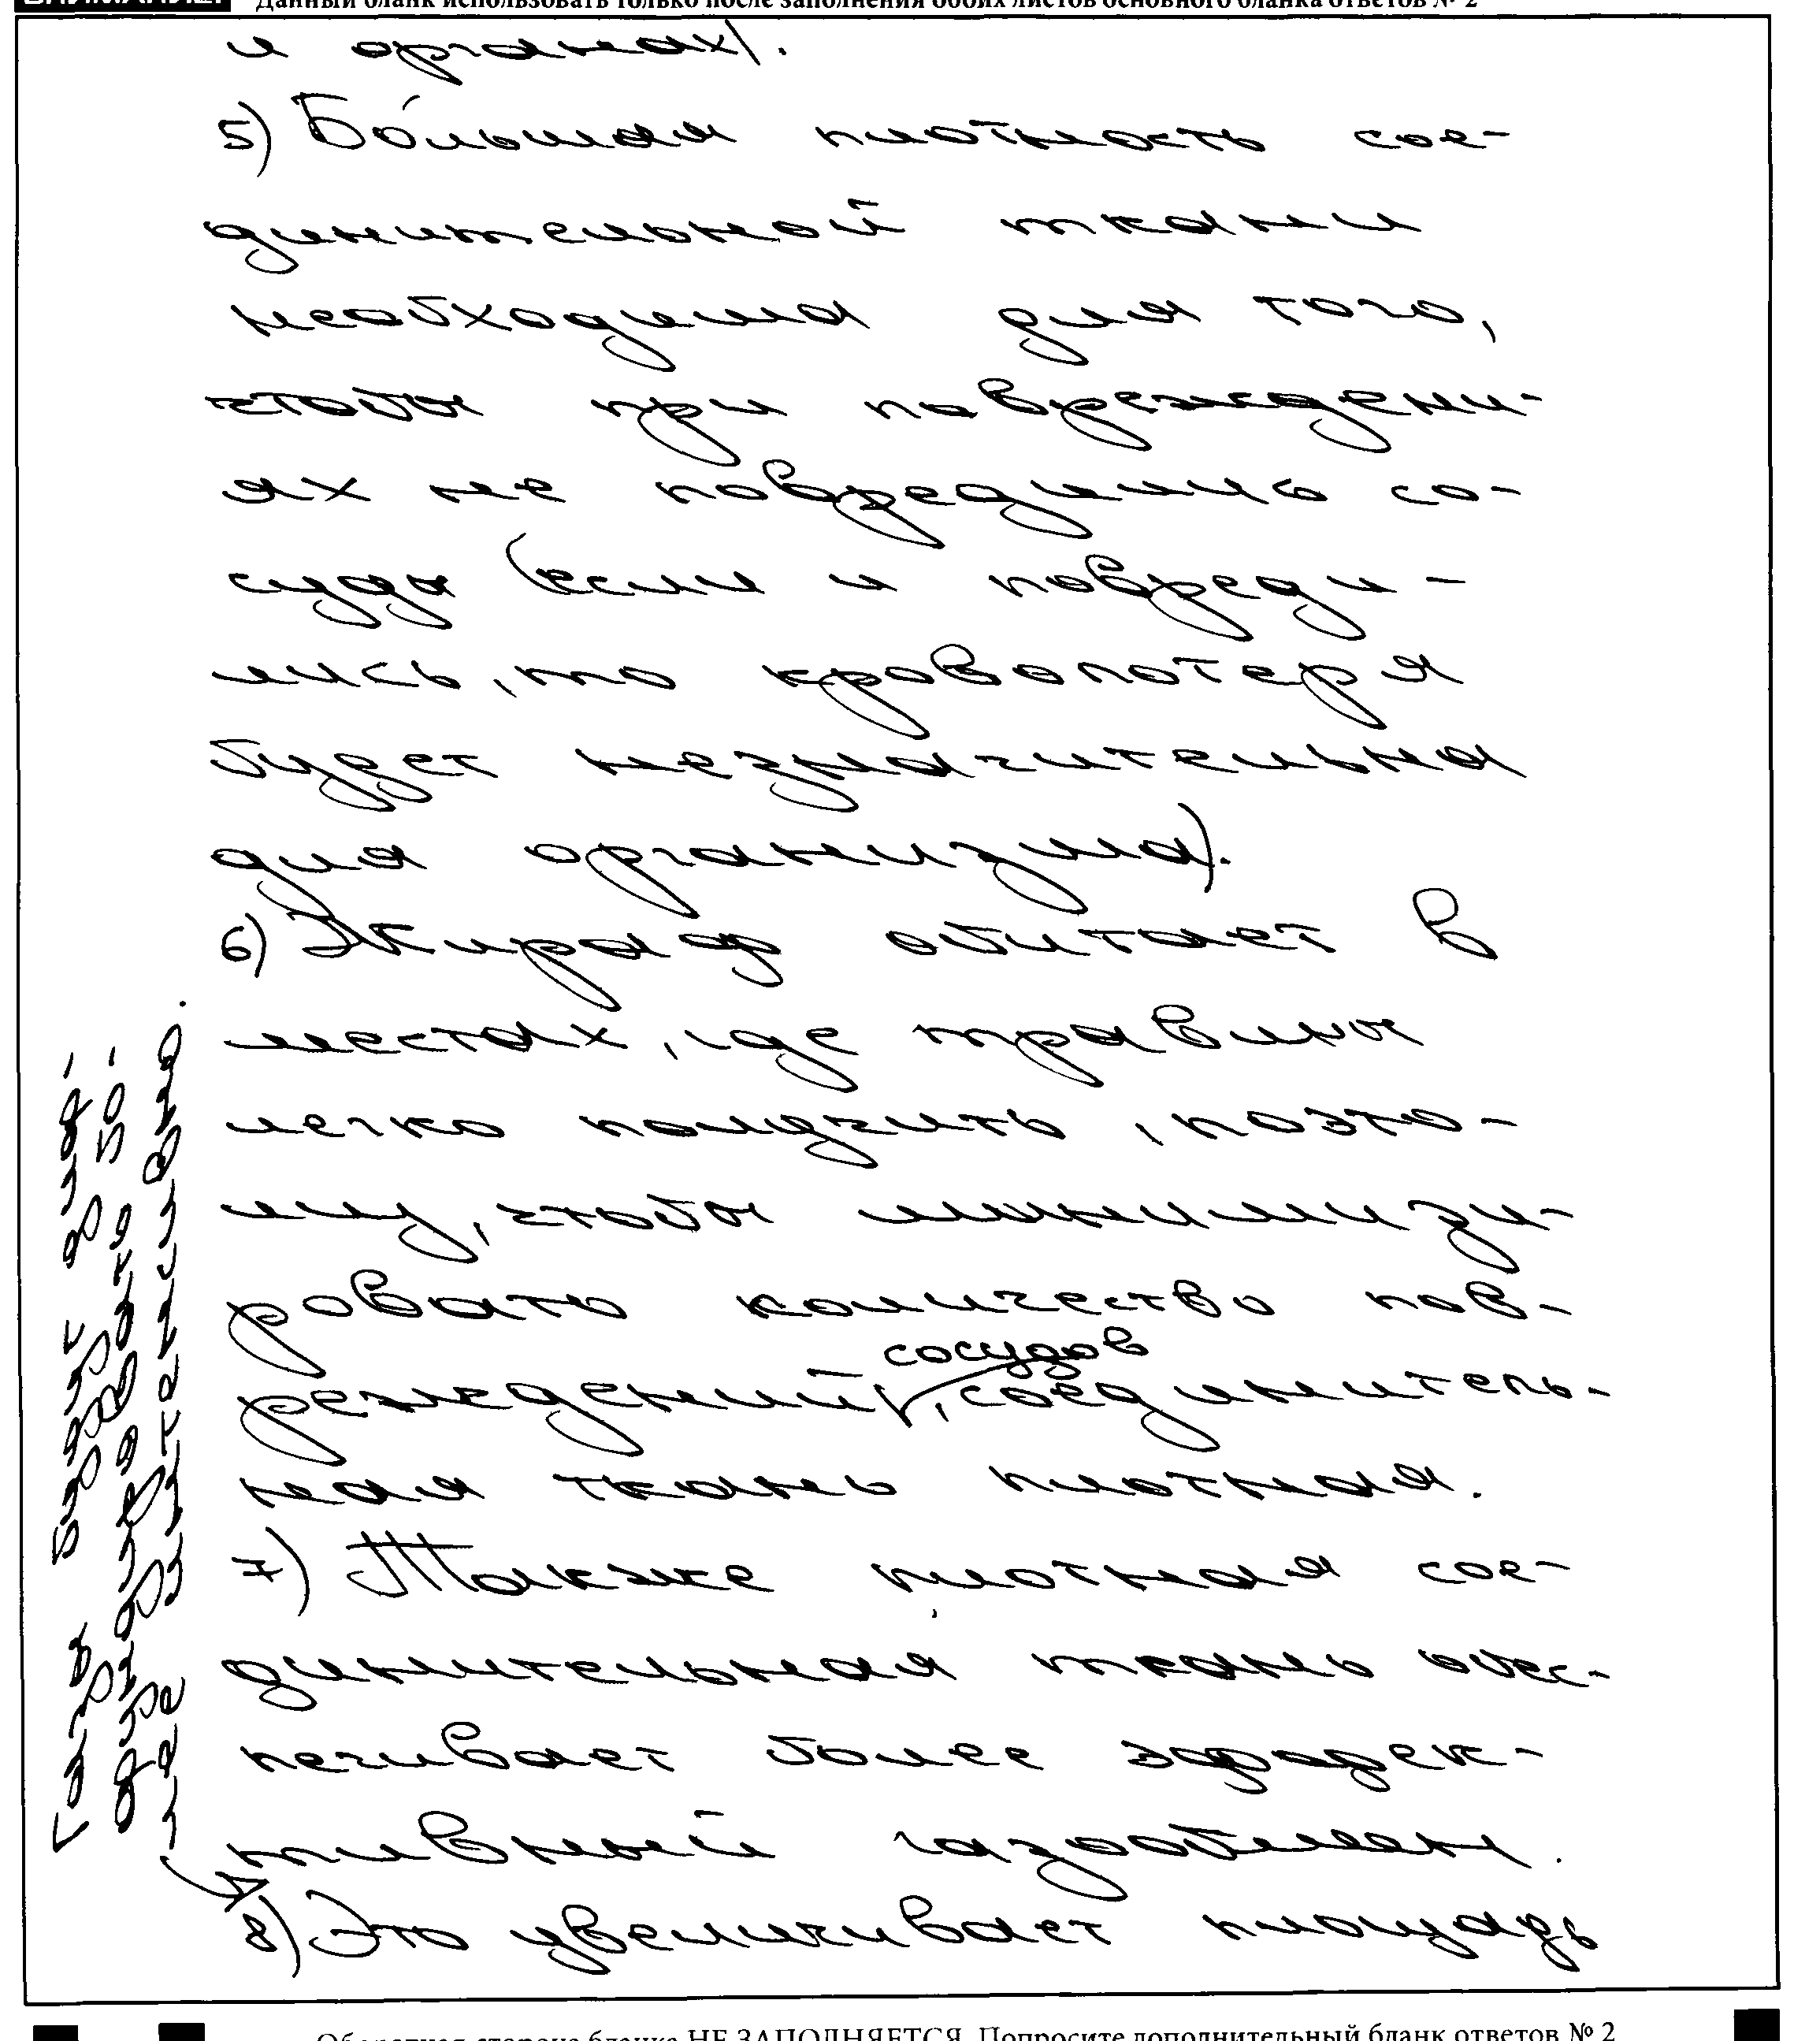 Данный бланк использовать только после заполнения обоих листов основного бланка ответов № 2
и органах).
5) Бо́льшая плотность сое-
динительной ткани
необходима для того,
чтобы при повреждени-
ях не повредились со-
суды (если и повреди-
лись, то кровопотеря
будет незначительна
для организма).
6) Жираф обитает в
местах, где травмы
легко получить, поэто-
му, чтобы минимизи-
ровать количество пов-
сосудов
реждений, соединитель-
ная ткань плотная.
7) Также плотная сое-
динительная ткань обес-
печивает более эффек-
тивный газообмен.
8) Это увеличивает площадь
Газы будут диф-
фундировать бо-
лее интенсивно.
Оборотная сторона бланка НЕ ЗАПОЛНЯЕТСЯ. Попросите дополнительный бланк ответов № 2